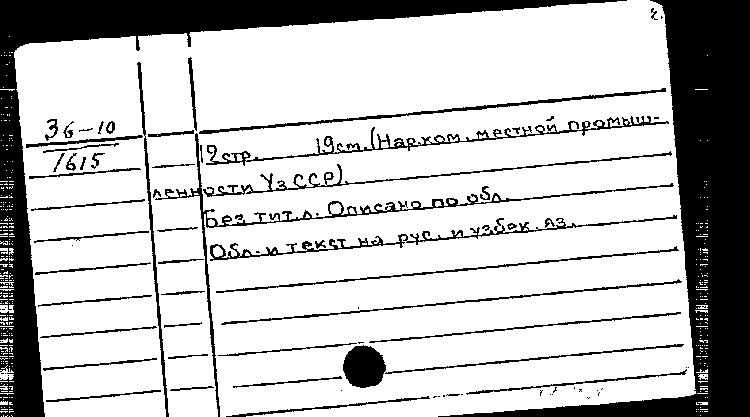 2.
36-10
1615
12 стр. 19 см. (Нар.ком. местной промыш-
ленности УзССР).
Без тит. л. Описано по обл.
Обл. и текст на рус. и узбек. яз.